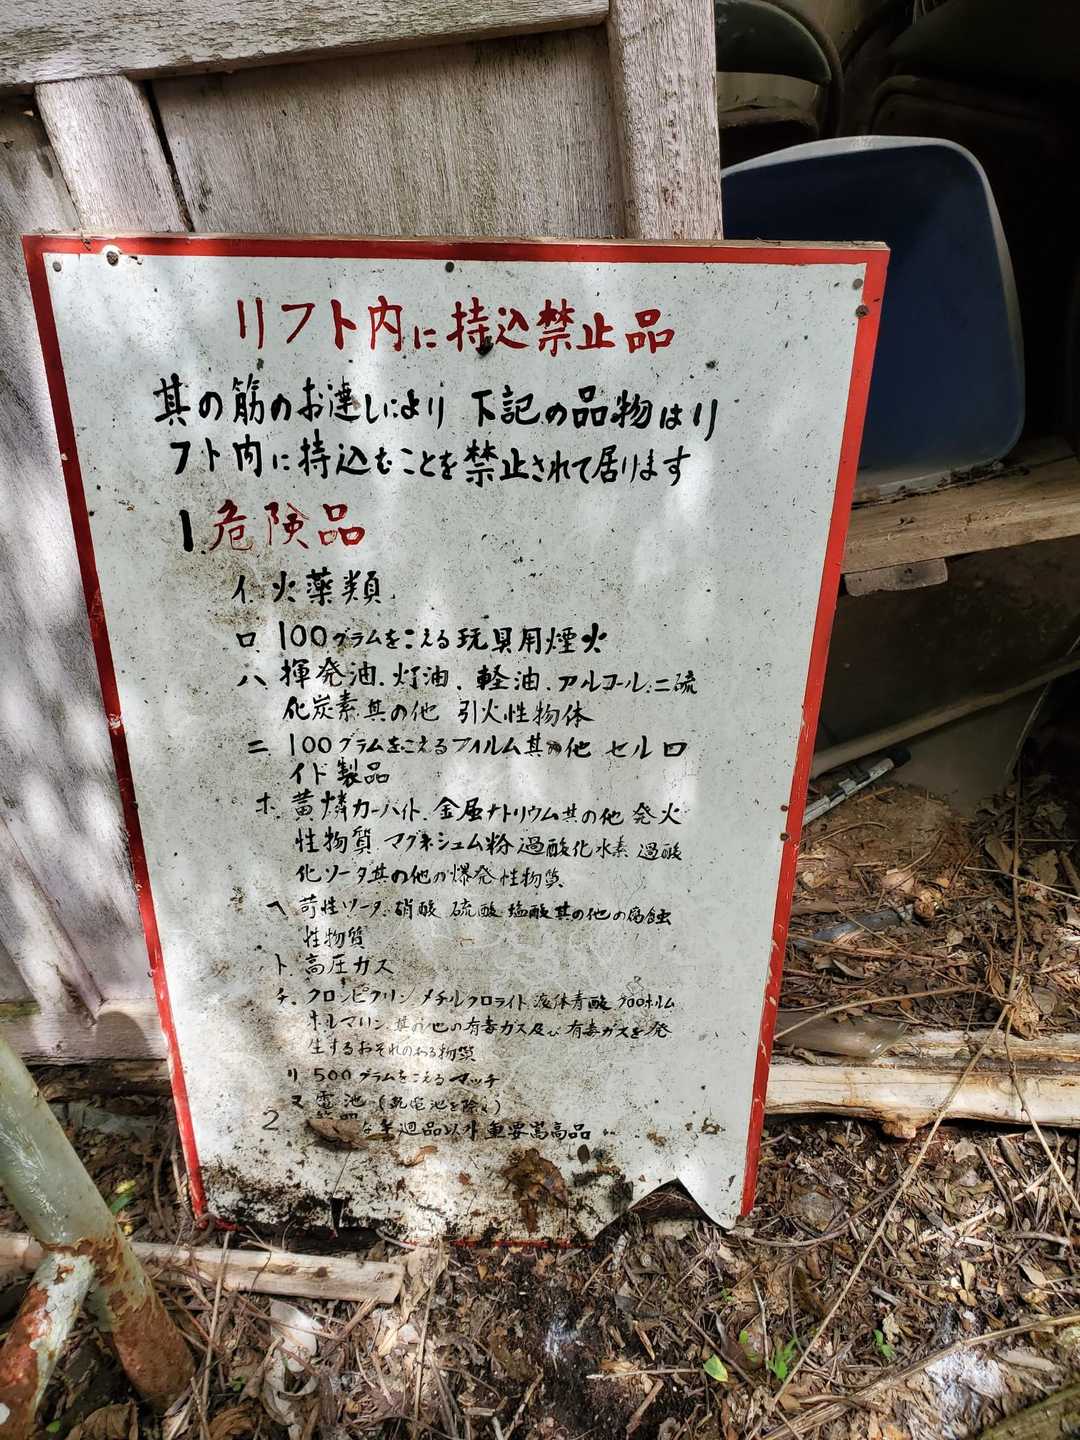 リフト内に持込禁止品
其の筋のお達しにより 下記の品物はリ
フト内に持込むことを禁止されて居ります
1.危険品
イ. 火薬類
ロ. 100グラムをこえる玩具用煙火
ハ. 揮発油.灯油.軽油.アルコール.二硫
化炭素.其の他 引火性物体
ニ 100グラムをこえるフィルム其の他 セルロ
イド製品
ホ. 黄燐カーバイト.金属ナトリウム其の他 発火
性物質 マグネシュム粉 過酸化水素 過酸
化ソータ其の他の爆発性物質
ヘ 苛性ソータ.硝酸 硫酸 塩酸其の他の腐蝕
性物質
ト. 高圧ガス
チ. クロンピクリン メチルクロライト 液体青酸 クロロホルム
ホルマリン.其の他の有毒ガス及び有毒ガスを発
生するおそれのある物質
リ 500グラムをこえるマッチ
ヌ 電池 (乾電池を除く)
2 品以外 重要嵩高品